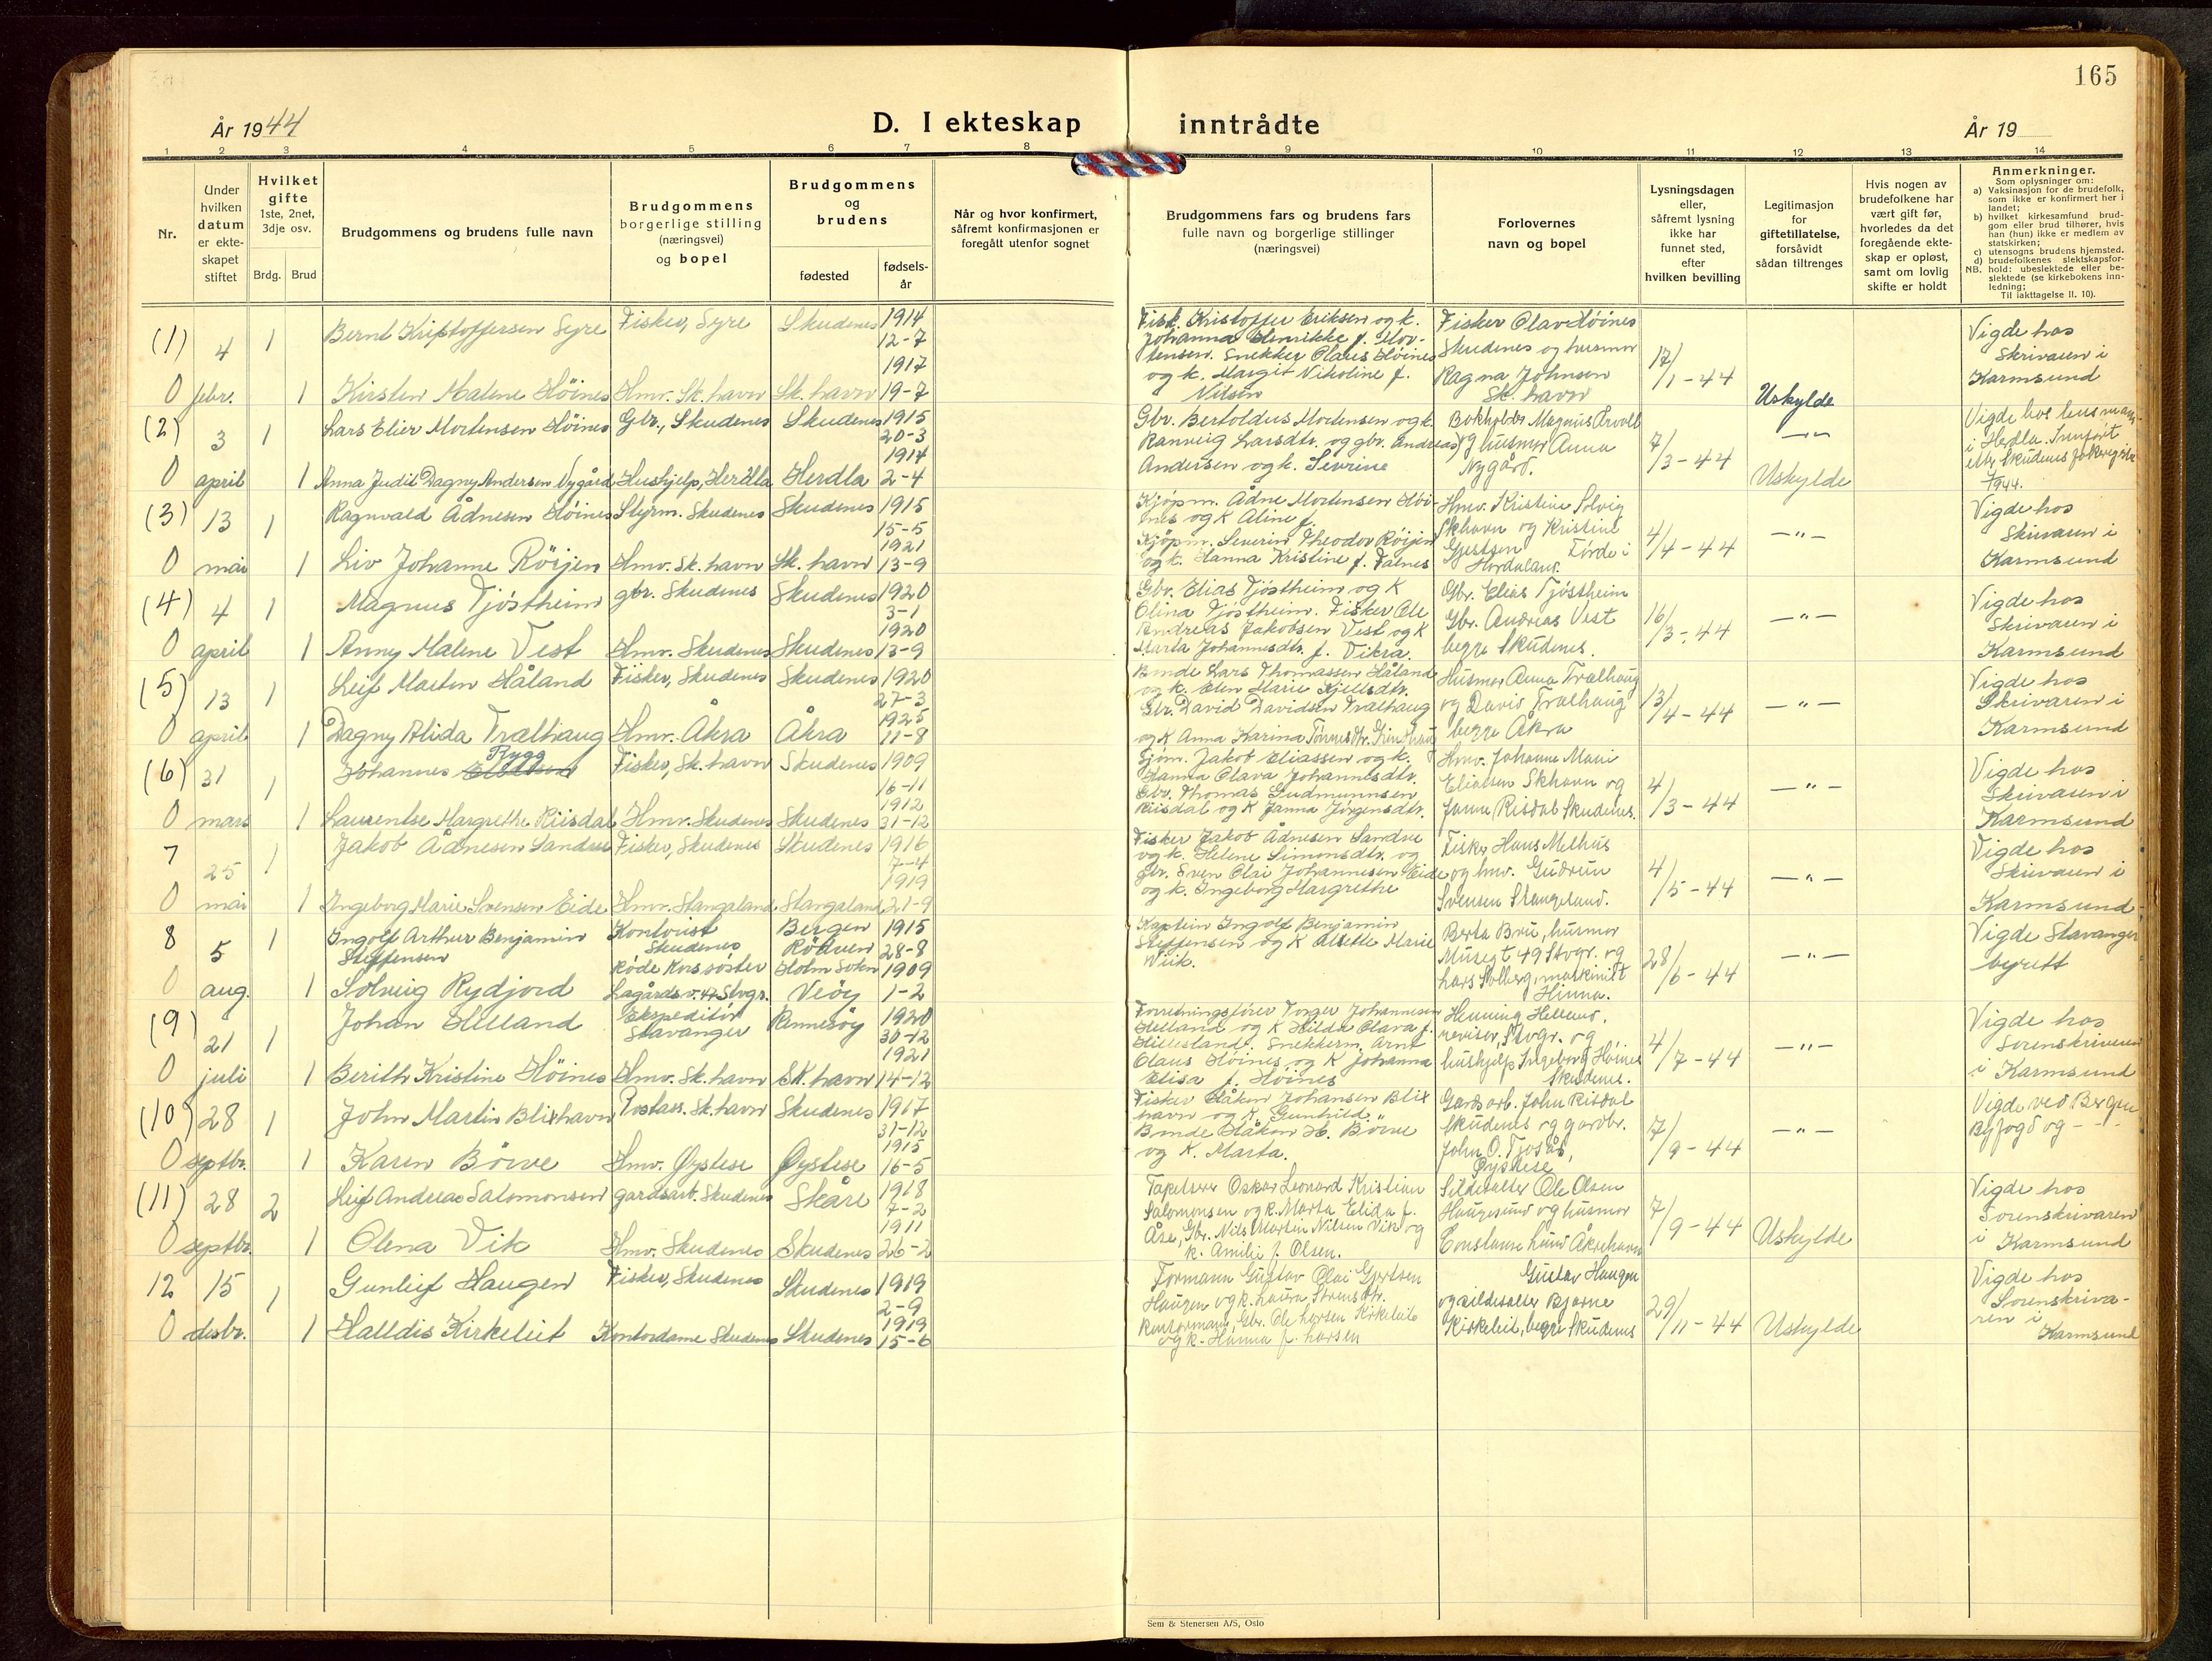 165
År 1944
D. I ekteskap inntrådte
År 19
1 2 3 4 5 6 7 8 9 10 11 12 13 14
Nr.
Under hvilken datum er ekteskapet stiftet
Hvilket gifte 1ste, 2net, 3dje osv.
Brdg. Brud
Brudgommens og brudens fulle navn
Brudgommens borgerlige stilling (næringsvei) og bopel
Brudgommens og brudens
fødested
fødsels-år
Når og hvor konfirmert, såfremt konfirmasjonen er foregått utenfor sognet
Brudgommens fars og brudens fars fulle navn og borgerlige stillinger (næringsvei)
Forlovernes navn og bopel
Lysningsdagen eller, såfremt lysning ikke har funnet sted, efter hvilken bevilling
Legitimasjon for giftetillatelse, forsåvidt sådan tiltrenges
Hvis nogen av brudefolkene har vært gift før, hvorledes da det foregående ekteskap er opløst, samt om lovlig skifte er holdt
Anmerkninger.
Som oplysninger om:
a) Vaksinasjon for de brudefolk, som ikke er konfirmert her i landet;
b) hvilket kirkesamfund brudgom eller brud tilhører, hvis han (hun) ikke er medlem av statskirken;
c) utensogns brudens hjemsted.
d) brudefolkenes slektskapsforhold: ubeslektede eller beslektede (se kirkebokens innledning;
NB.
Til iakttagelse II. 10).
(1) 4 1 Bernt Kristoffersen Syre Fisker, Syre Skudenes 1914 12-7
0 febr. 1 Kirsten Malene Höines Hmv. Sk. havn Sk. havn 1917 19-7
Fisk. Kristoffer Eriksen og k.
Johanna Henrikke f. Mor-
tensen. Snekker Claus Höines
og k. Margit Nikoline f.
Nilsen
Fisker Olav Höines
Skudenes og husmor
Ragna Johnsen
Sk. havn
17/1-44
Uskylde
Vigde hos
Skrivaren i
Karmsund
(2) 3 1 Lars Elier Mortensen Höines Gbr., Skudenes Skudenes 1915 20-3
0 april 1 Anna Judit Dagny Andersen Nygård Hushjelp, Herdla Herdla 1914 2-4
Gbr. Bertoldus Mortensen og k.
Ranveig Larsdtr. og gbr. Andreas
Andersen og k. Severine
Bokholder Magnus
og husmor Anna
Nygård.
7/3-44
-"-
Uskylde
Vigde hos
i Herdla. Innført
etter Skudenes
1944.
(3) 13 1 Ragnvald Ådnesen Höines Styrm. Skudenes Skudenes 1915 15-5
0 mai 1 Liv Johanne Röijen Hmv. Sk. havn Sk. havn 1921 13-9
Kjöpm. Ådne Mortensen Höi-
nes og K Aline f.
Kjöpm. Severin Theodor Röijen
og k. Hanna Kristine f. Falnes
Hmv. Kristine Solvig
Skhavn og Kristine
Gjertsen Förde i
Hordaland.
4/4-44
-"-
Vigde hos
Skrivaren i
Karmsund
(4) 4 1 Magnus Tjöstheim gbr. Skudenes Skudenes 1920 3-1
0 april 1 Anny Malene Vest Hmv. Skudenes Skudenes 1920 13-9
Gbr. Elias Tjöstheim og K
Olina Tjöstheim. Fisker Ole
Andreas Jakobsen Vest og K
Marta Johannesdtr. f. Vikra.
Gbr. Elias Tjöstheim
Gbr. Andreas Vest
begge Skudenes.
16/3-44
-"-
Vigde hos
Skrivaren i
Karmsund
(5) 13 1 Leif Marten Håland Fisker, Skudenes Skudenes 1920 27-3
0 april 1 Dagny Alida Trælhaug Hmv. Åkra Åkra 1925 11-8
Bonde Lars Thomassen Håland
og k. Elen Marie Kjellsdtr.
Gbr. David Davidsen Trælhaug
og K Anna Karina Tönnesdtr.
Husmor Anna Trælhaug
og David Trælhaug
begge Åkra
13/4-44
-"-
Vigde hos
Skrivaren i
Karmsund
(6) 31 1 Johannes Eliassen Rygg Fisker, Sk. havn Skudenes 1909 16-11
0 mars 1 Laurentse Margrethe Riisdal Hmv. Skudenes Skudenes 1912 31-12
Jakob Eliassen og k.
Hanna Olava Johannesdtr.
Gbr. Thomas Gudmunnsen
Riisdal og K Janna Jörgensdtr.
Hmv. Johanne Marie
Eliassen Skhavn og
Janne Risdal Skudenes.
4/3-44
-"-
Vigde hos
Skrivaren i
Karmsund
7 25 1 Jakob Ådnesen Sandve Fisker, Skudenes Skudenes 1916 7-4
0 mai 1 Ingeborg Marie Svensen Eide Hmv. Stangaland Stangaland 1919 21-9
Fisker Jakob Ådnesen Sandve
og k. Helene Simonsdtr. og
Gbr. Sven Olai Johannesen Eide
og k. Ingeborg Margrethe
Fisker Hans Melhus
og hmv. Gudrun
Svensen Stangeland.
4/5-44
-"-
Vigde hos
Skrivaren i
Karmsund
8 5 1 Ingolf Arthur Benjamin Steffensen Kontorist Skudenes Bergen 1915 28-8
0 aug. 1 Solveig Rydjord Röde Kors söster Lagårdsv. 47 Stvgr. Rödven Holm Sokn Veöy 1909 1-2
Kaptein Ingolf Benjamin
Steffensen og K Alette Marie
Wiik.
Berta Bru, husmor
Musegt 49 Stvgr. og
Lars Solberg, maskinist
Hinna.
28/6-44
-"-
Vigde Stavanger
byrett
(9) 21 1 Johan Helland Ekspeditör Stavanger Rennesöy 1920 30-12
0 juli 1 Berith Kristine Höines Hmv. Sk. havn Sk. havn 1921 14-12
Forretningsförer Torger Johannesen
Helland og K Hilda Olava f.
Hillesland. Snekkerm. Arnt
Claus Höines og K Johanna
Elisa f. Höines
Henning Helland,
revisor, Stvgr. og
hushjelp Ingeborg Höines
Skudenes.
4/7-44
-"-
Vigde hos
Sorenskriveren
i Karmsund
(10) 28 1 John Martin Blixhavn Postass. Sk. havn Skudenes 1917 31-12
0 septbr. 1 Karen Börve Hmv. Øystese Øystese 1915 16-5
Fisker Håkon Johansen Blix
havn og K. Gunhild "
Bonde Håkon H. Börve
og K. Marta.
Gardsarb. John Risdal
Skudenes og gardbr.
John O. Tjosås,
Øystese
7/9-44
-"-
Vigde ved Bergen
Byfogd og - " -
(11) 28 2 Leif Andreas Salomonsen gardsarb. Skudenes Skåre 1918 7-2
0 septbr. 1 Olena Vik Hmv. Skudenes Skudenes 1911 26-2
Tapetserer Oskar Leonard Kristian
Salomonsen og k. Marta Elida f.
Åse, Gbr. Nils Martin Nilsen Vik og
k. Amilie f. Olsen.
Sildesalter Ole Olsen
Haugesund og husmor
Constanse Lund Åkrehavn
7/9-44
Uskylde
Vigde hos
Sorenskrivaren
i Karmsund
12 15 1 Gunlief Haugen Fisker, Skudenes Skudenes 1919 2-9
0 desbr. 1 Halldis Kirkeleit Kontordame Skudenes Skudenes 1919 15-6
Formann Gustav Olai Gjertsen
Haugen og k. Laura Sörensdtr.
Gbr. Ole Larsen Kirkeleit
og k. Hanna f. Larsen
Gustav Haugen
og sildesalter Bjarne
Kirkeleit, begge Skudenes
29/11-44
Uskylde
Vigde hos
Sorenskriva-
ren i
Karmsund
Sem & Stenersen A/S, Oslo